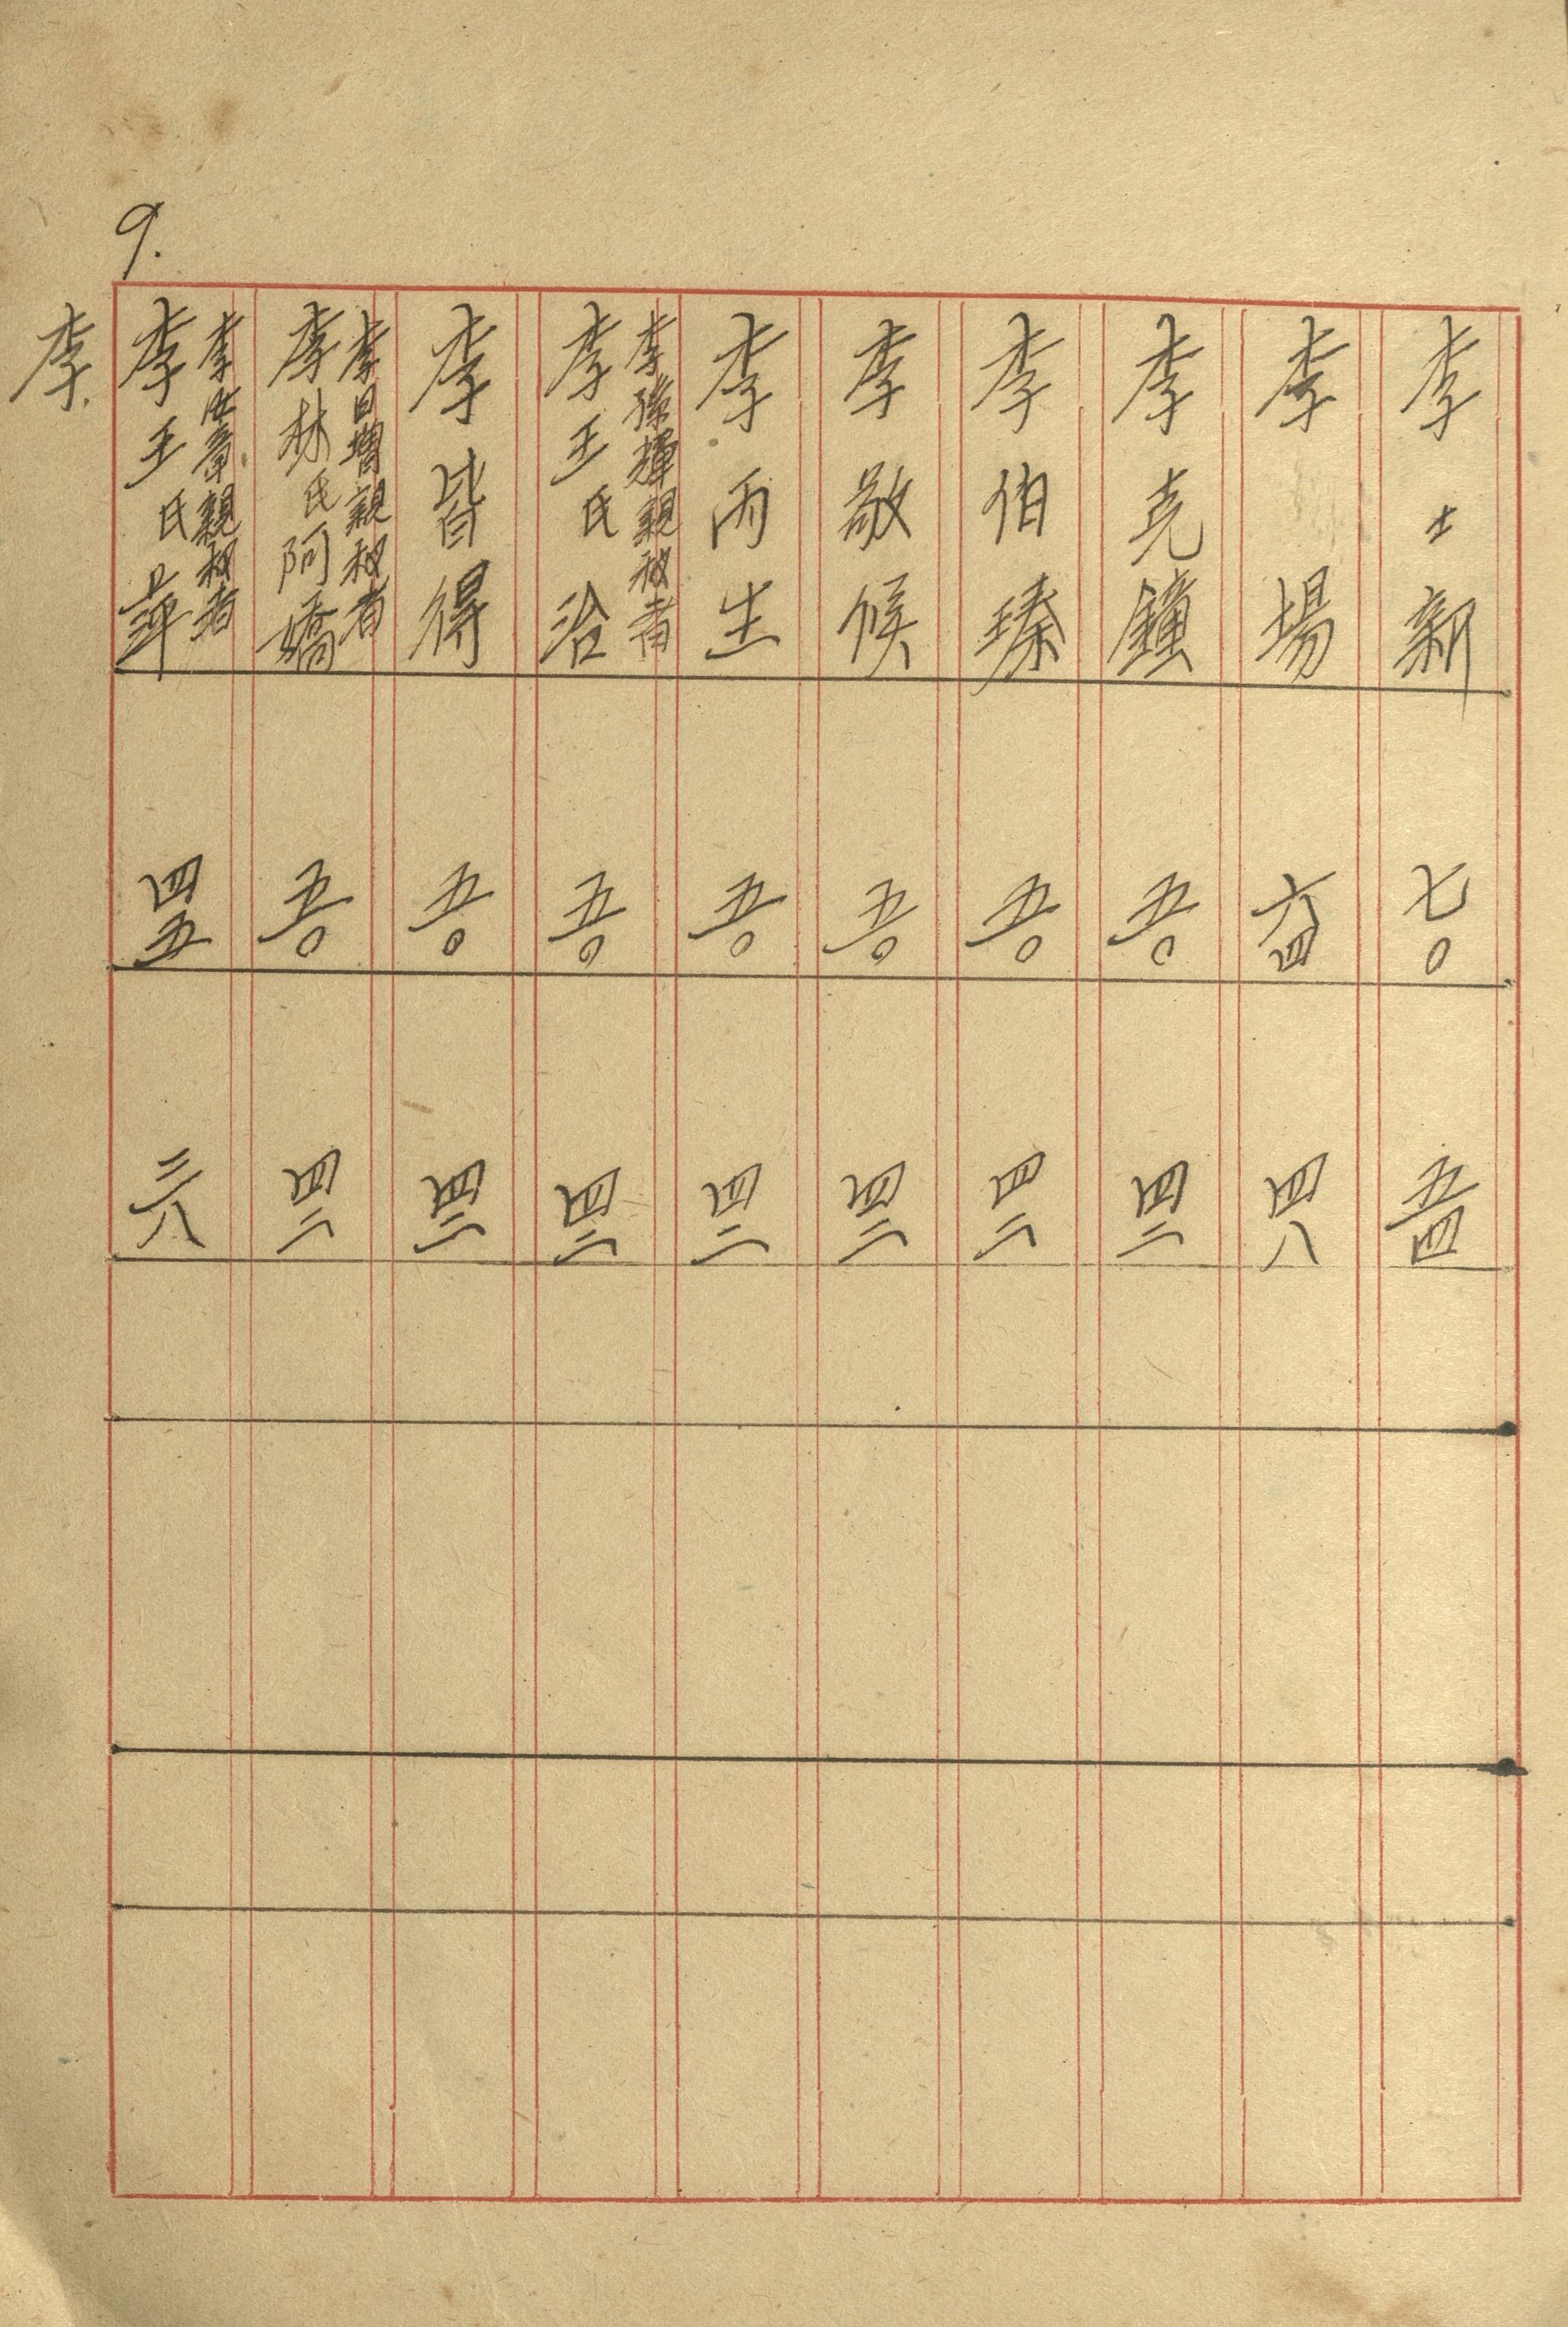 9.
李士新 七〇 五四
李場 六四 四八
李克鐘 五〇 四二
李伯瑧 五〇 四二
李敬候 五〇 四二
李丙生 五〇 四二
李孫輝親权者
李王氏治 五〇 四二
李皆得 五〇 四二
李日增親权者
李林氏阿嬌 五〇 四二
章親权者
李王氏 四五 三八
李